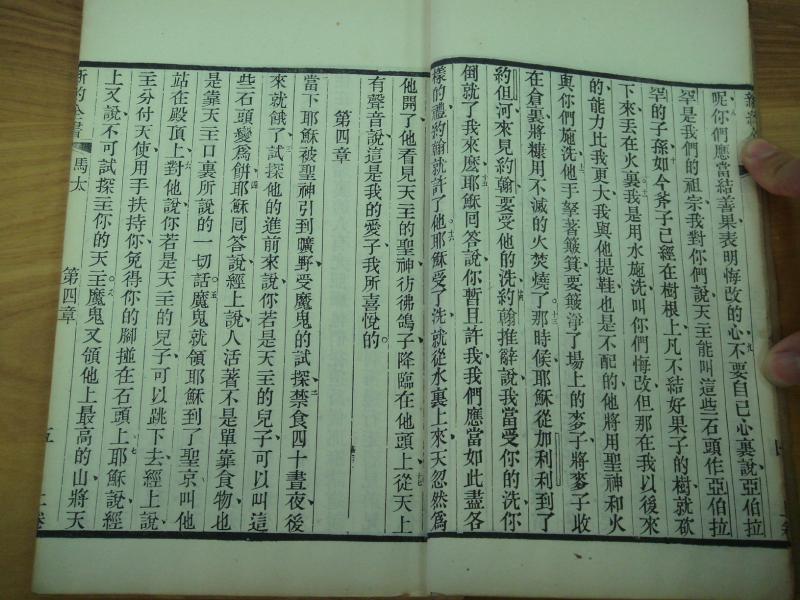 呢、你們應當結善果、表明悔改的心、九不要自己心裏說、亞伯拉
罕是我們的祖宗、我對你們說、天主能叫這些石頭作亞伯拉
罕的子孫、十如今斧子已經在樹根上、凡不結好果子的樹、就砍
下來丟在火裏、十一我是用水施洗、叫你們悔改、但那在我以後來
的、能力比我更大、我與他提鞋、也是不配的、他將用聖神和火
與你們施洗、十二他手拏著簸箕、要簸淨了場上的麥子、將麥子收
在倉裏、將糠用不滅的火焚燒了。十三那時候耶穌從加利利到了
約但河、來見約翰、要受他的洗、十四約翰推辭說、我當受你的洗、你
倒就了我來麽、十五耶穌囘答說、你暫且許我、我們應當如此盡各
樣的禮、約翰就許了他。十六耶穌受了洗、就從水裏上來、天忽然爲
他開了、他看見天主的聖神、彷彿鴿子降臨在他頭上、十七從天上
有聲音說、這是我的愛子、我所喜悅的。
第四章
當下耶穌被聖神引到曠野、受魔鬼的試探、二禁食四十晝夜、後
來就餓了、三試探他的進前來說、你若是天主的兒子、可以叫這
些石頭變爲餠、四耶穌囘答說、經上說、人活著不是單靠食物、也
是靠天主口裏所說的一切話。五魔鬼就領耶穌到了聖京、叫他
站在殿頂上、六對他說、你若是天主的兒子、可以跳下去、經上說、
主分付天使用手扶持你、免得你的腳撞在石頭上、七耶穌說、經
上又說、不可試探主你的天主。八魔鬼又領他上最高的山、將天
新約全書
馬太
第四章
五
上卷